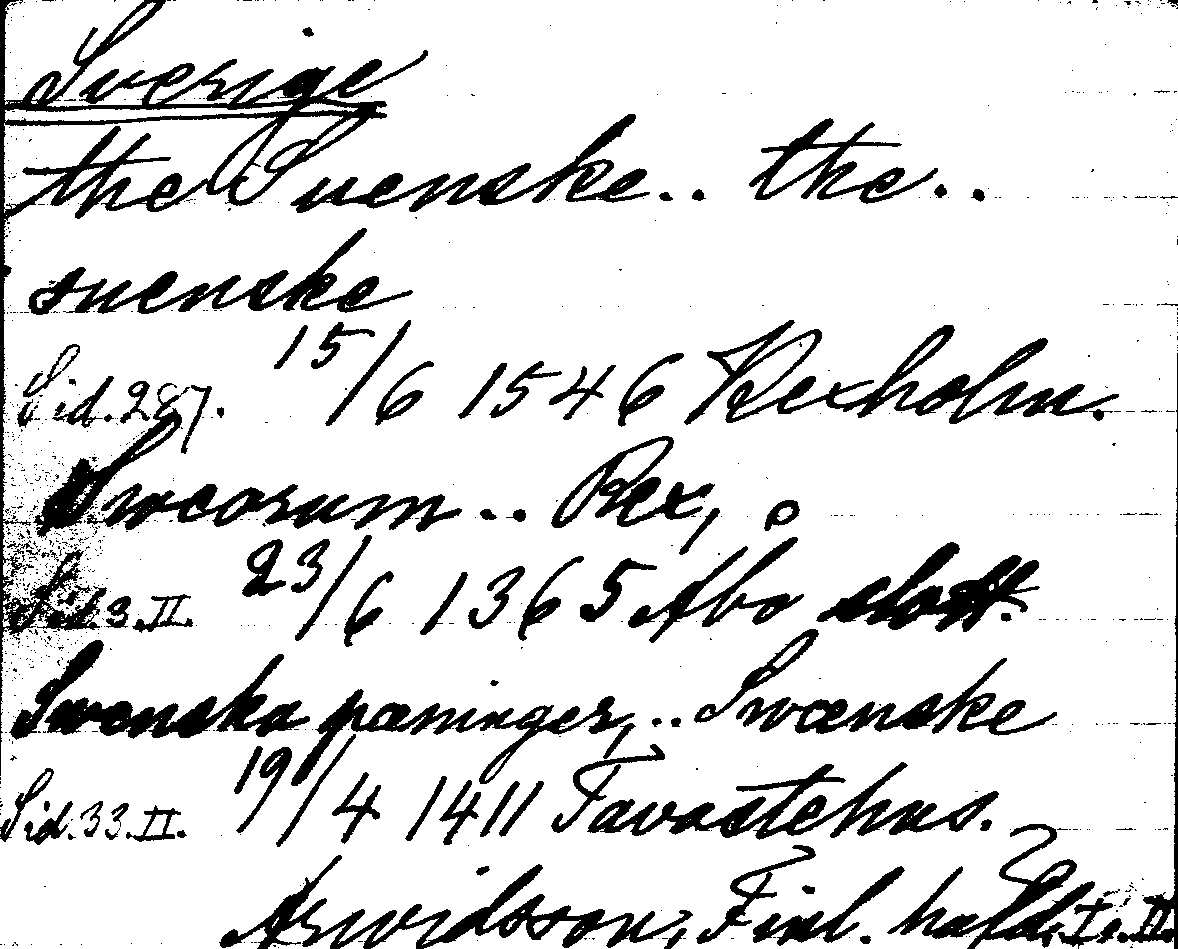 Sverige
the Suenske.. the..
suenske
Sid. 287. 15/6 1546 Kexholm.
Swcorum.. Rex, o
Sid. 3. II. 23/6 1365 Åbo slott.
Swenska pæninger,.. Swænske
Sid. 33. II. 19/4 1411 Tavastehus.
Arwidsson, Finl. häfd. I o. II.